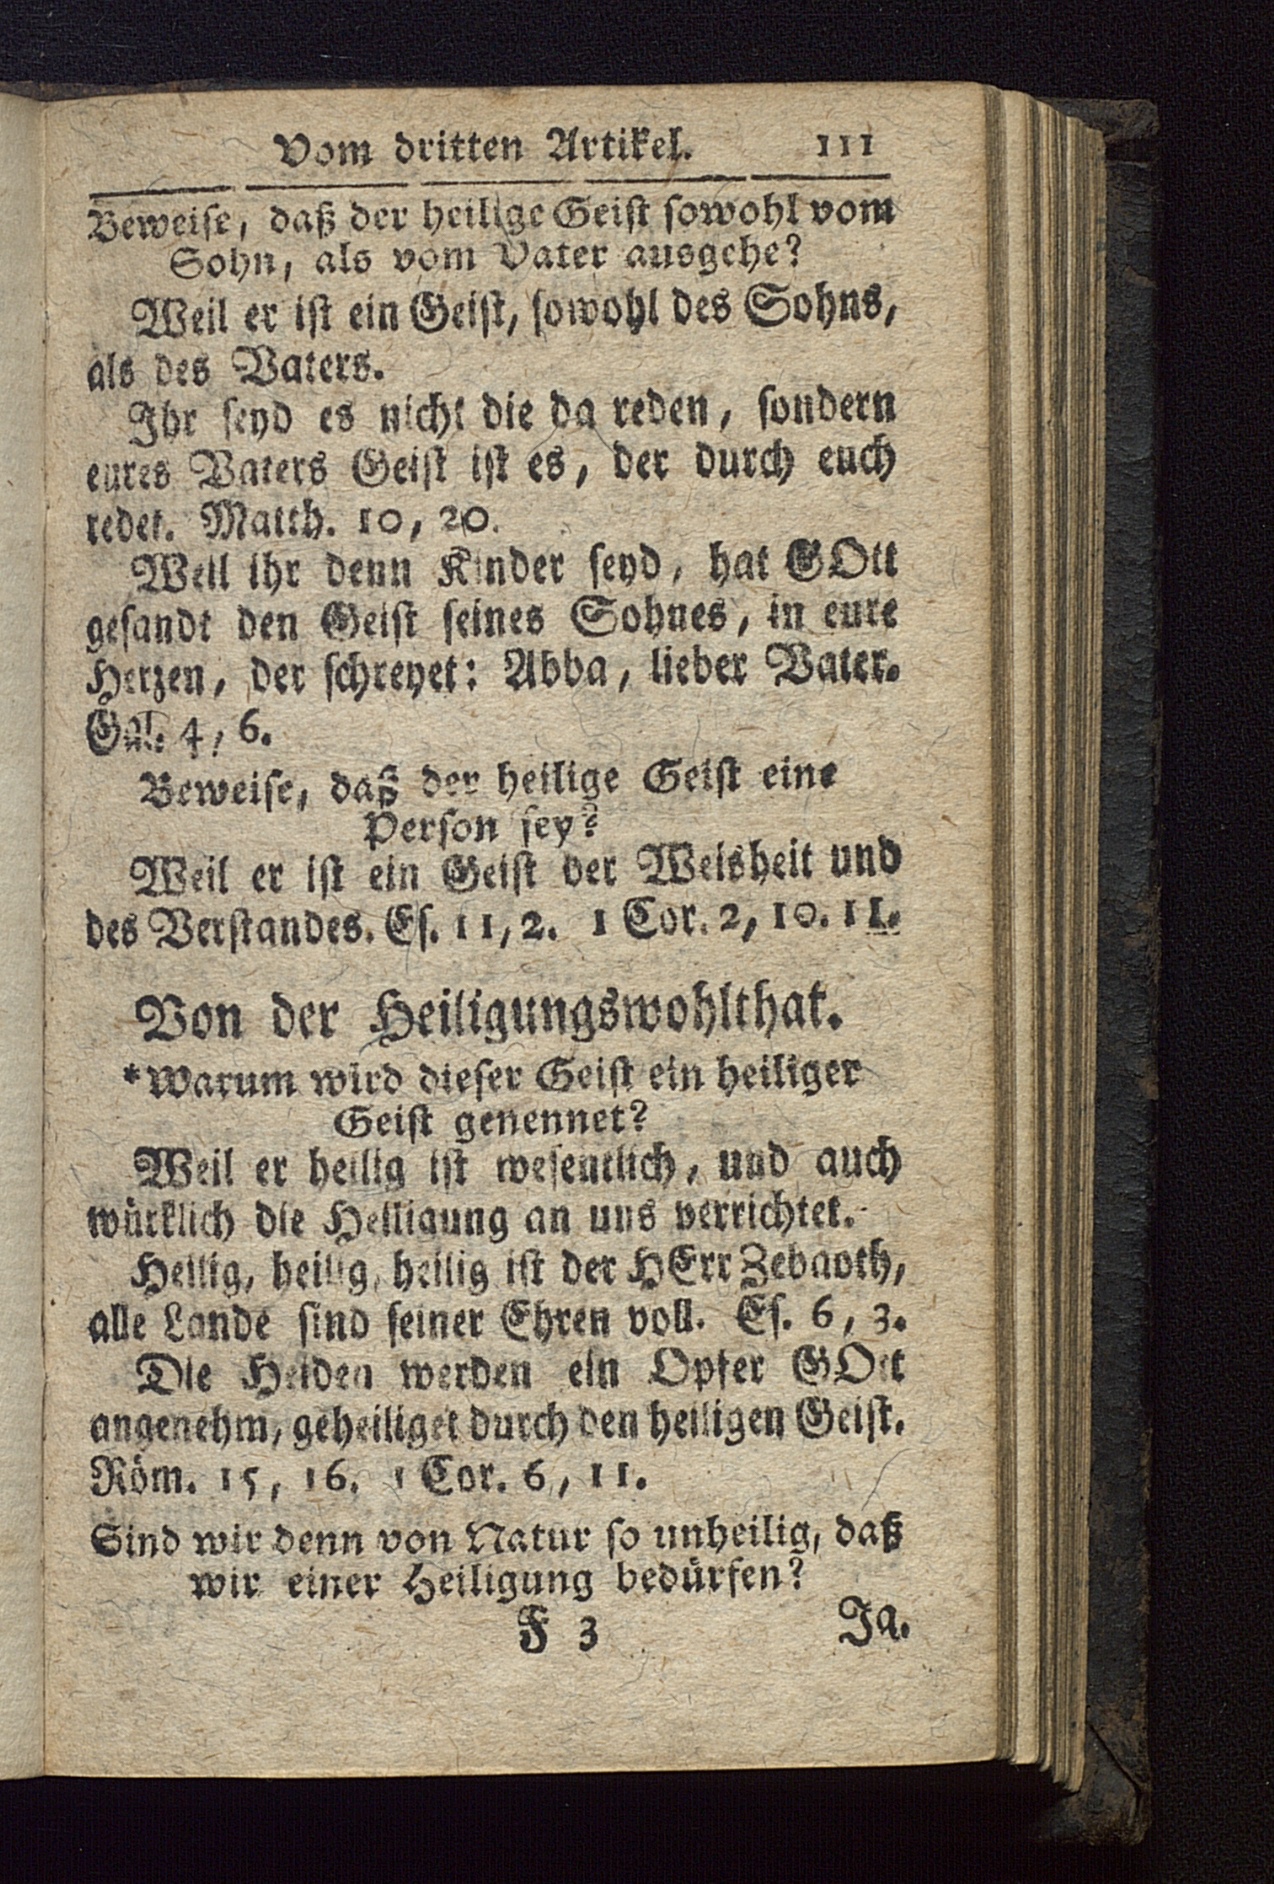 Vom dritten Artikel. 111
Beweise, daß der heilige Geist sowohl vom
Sohn, als vom Vater ausgehe?
Weil er ist ein Geist, sowohl des Sohns,
als des Vaters.
Ihr seyd es nicht die da reden, sondern
eures Vaters Geist ist es, der durch euch
redet. Matth. 10, 20.
Weil ihr denn Kinder seyd, hat GOtt
gesandt den Geist seines Sohnes, in eure
Herzen, der schreyet: Abba, lieber Vater.
Gal. 4, 6.
Beweise, daß der heilige Geist eine
Person sey?
Weil er ist ein Geist der Weisheit und
des Verstandes. Es. 11, 2. 1 Cor. 2, 10. 11.
Von der Heiligungswohlthat.
*Warum wird dieser Geist ein heiliger
Geist genennet?
Weil er heilig ist wesentlich, und auch
würklich die Heiligung an uns verrichtet.
Heilig, heilig, heilig ist der HErr Zebaoth,
alle Lande sind seiner Ehren voll. Es. 6, 3.
Die Heiden werden ein Opfer GOtt
angenehm, geheiliget durch den heiligen Geist.
Röm. 15, 16. 1 Cor. 6, 11.
Sind wir denn von Natur so unheilig, daß
wir einer Heiligung bedürfen?
F 3 Ja.